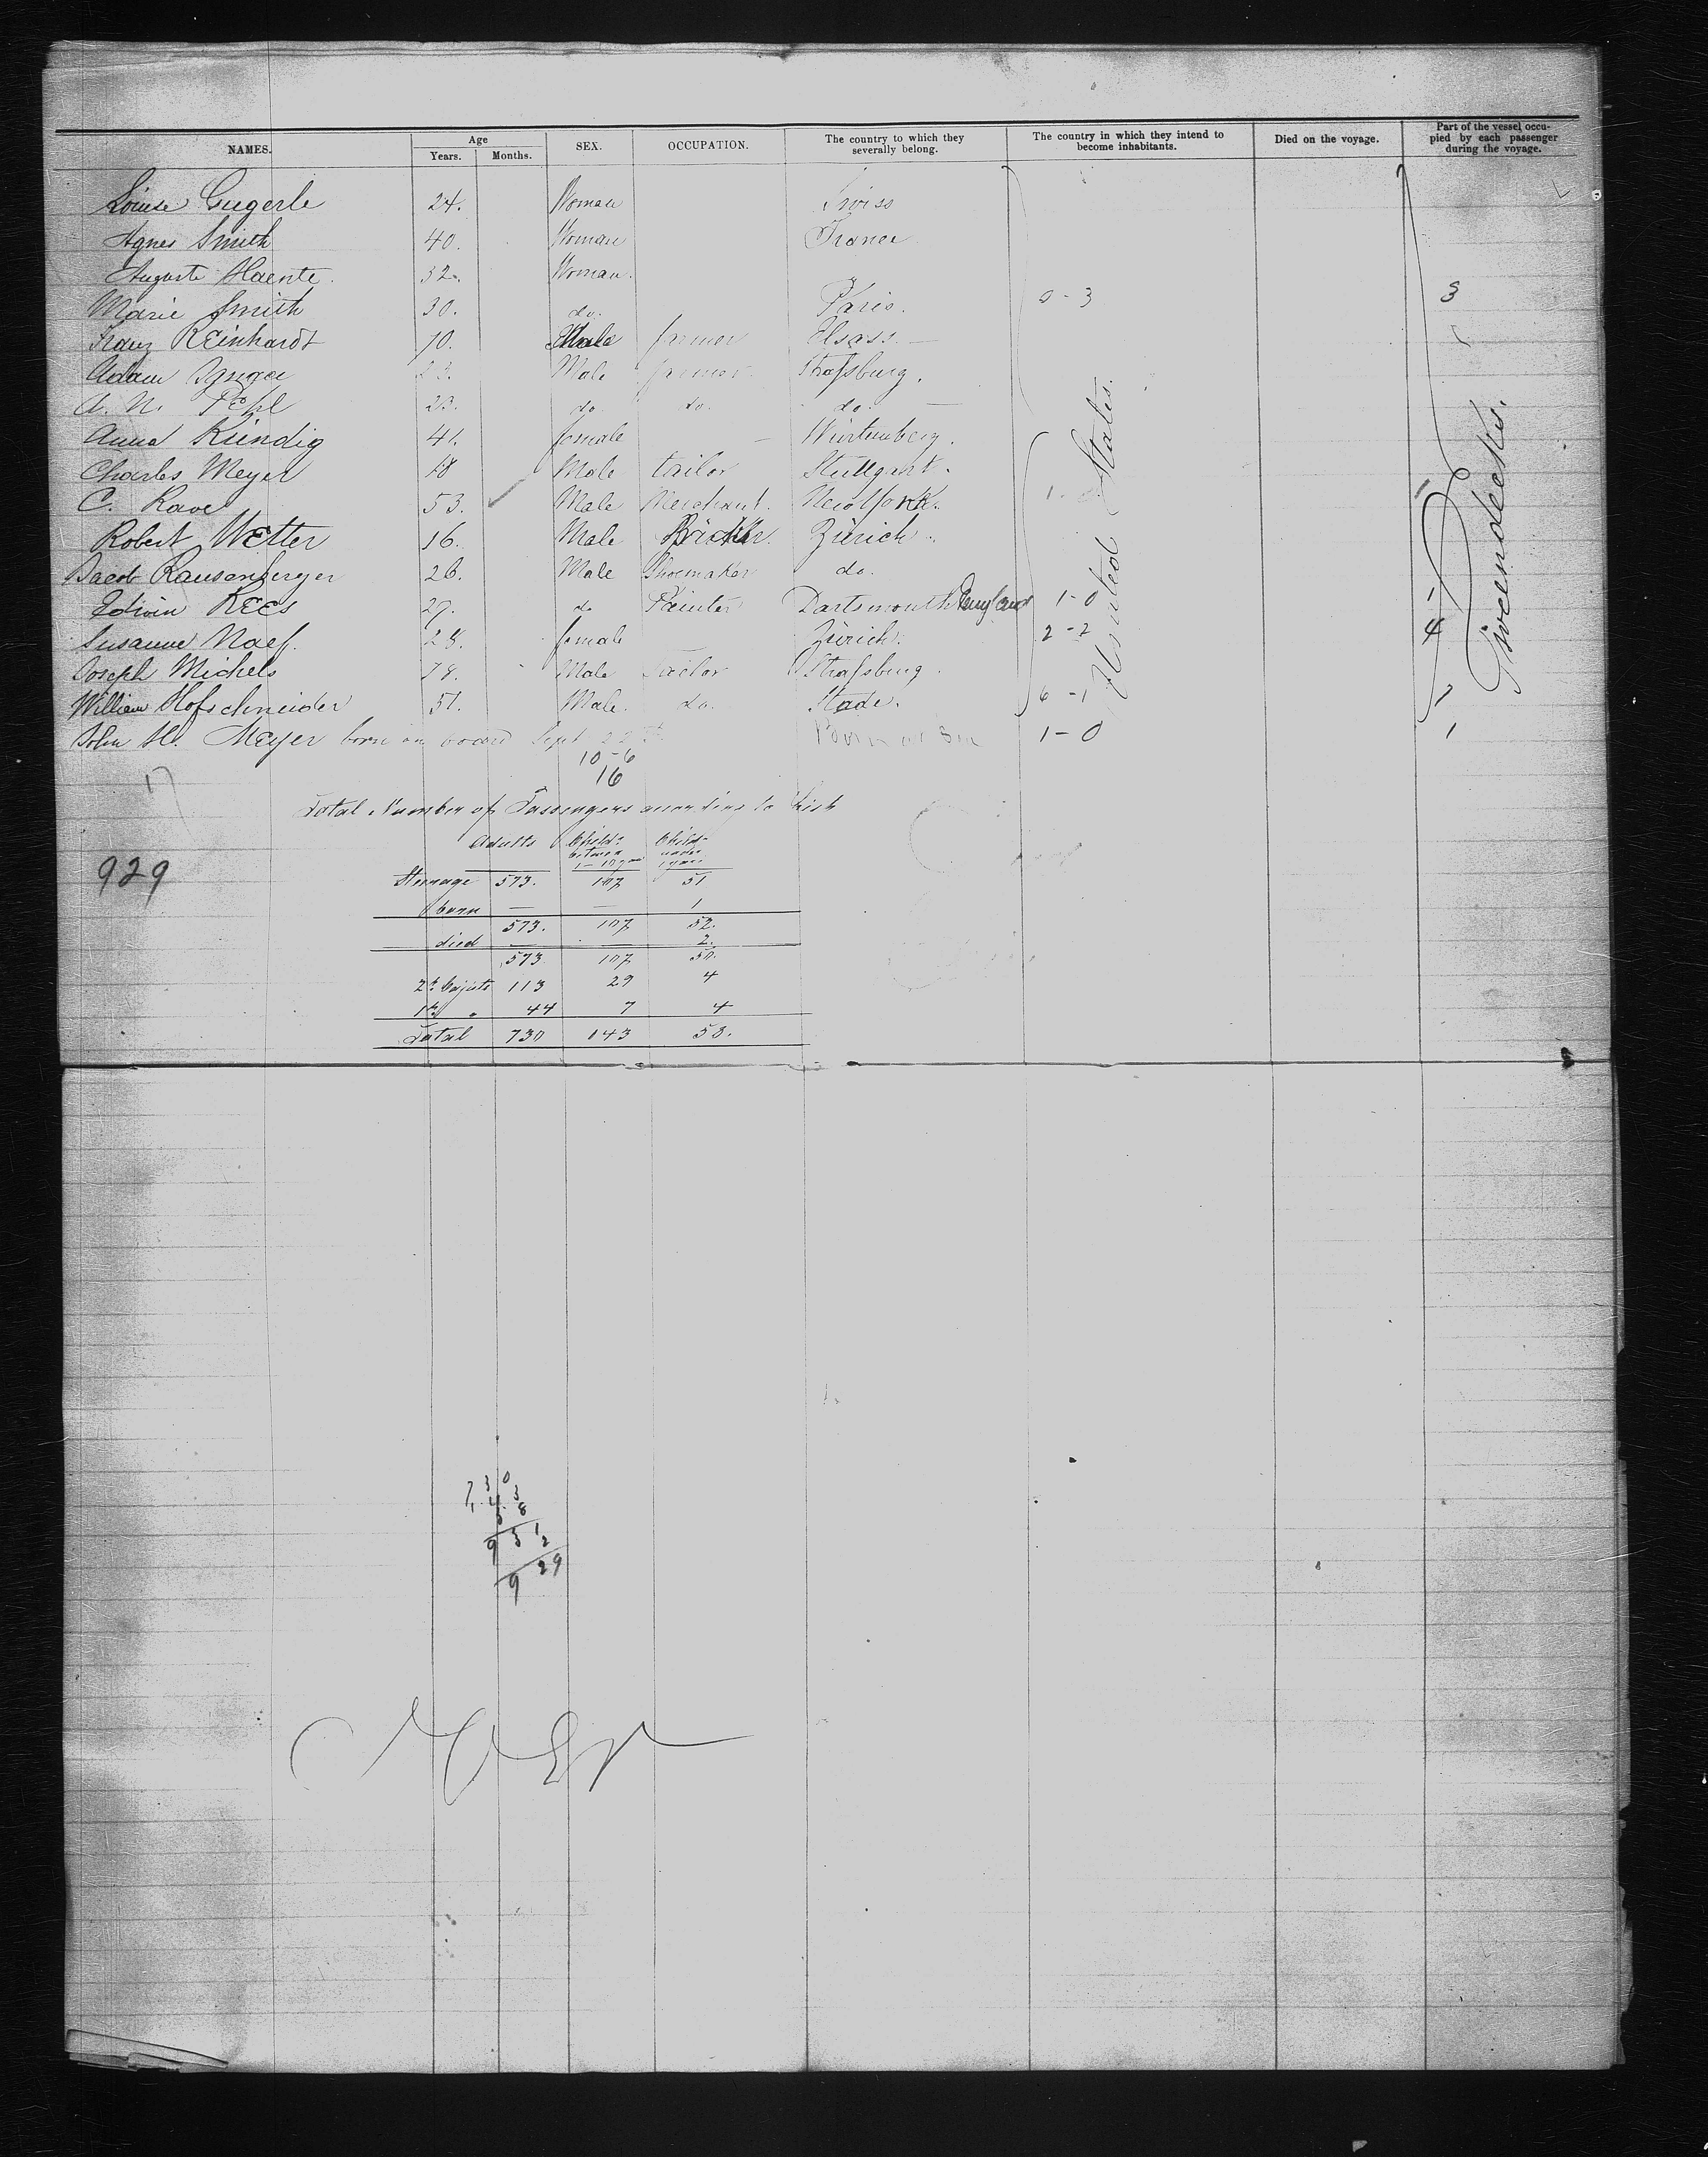 NAMES. Age Years. Months. SEX. OCCUPATION. The country to which they severally belong. The country in which they intend to become inhabitants. Died on the voyage. Part of the vessel occupied by each passenger during the voyage.
Louise Gugerle 24. Woman Swiss
Agnes Smith 40. Woman France
Auguste Haente. 32. Woman.
Marie Smith 30. do. Paris. 0-3 3
Franz Reinhardt 70. Male farmer Elsass. —
Adam Male farmer Straßburg.
A. N. Pehl 23. do. do. do. —
Anna Kündig 41. female — Würtemberg.
Charles Meyer 48 Male tailor Stuttgart.
C. Rave 53. Male Merchant. New York.
Robert Wetter 16. Male Zürich.
Jacob Rausenberger 26. Male Shoemaker do.
Edwin Rees 27. do Painter Dartsmouth England 1-0 1
Susanne Naef. 28. female Zürich. 2-2 4
Joseph Michels 78. Male Tailor Straßburg.
William Hofschneider 51. Male. do. Stade. 6-1 7
John H. Meyer born on board Sept 22 Born at Sea 1-0 1
United States.
Zwieendecks.
10-6
16
17
Total Number of Passengers according to List
Adults Child. between 1-10 years Child. under 1 year
929
Steerage 573. 107 51
born — — 1
573. 107 52.
died — — 2.
573 107 50.
2t Cajüte 113 29 4
1t " 44 7 4
Total 730 143 58.
730
143
58
931
2
929